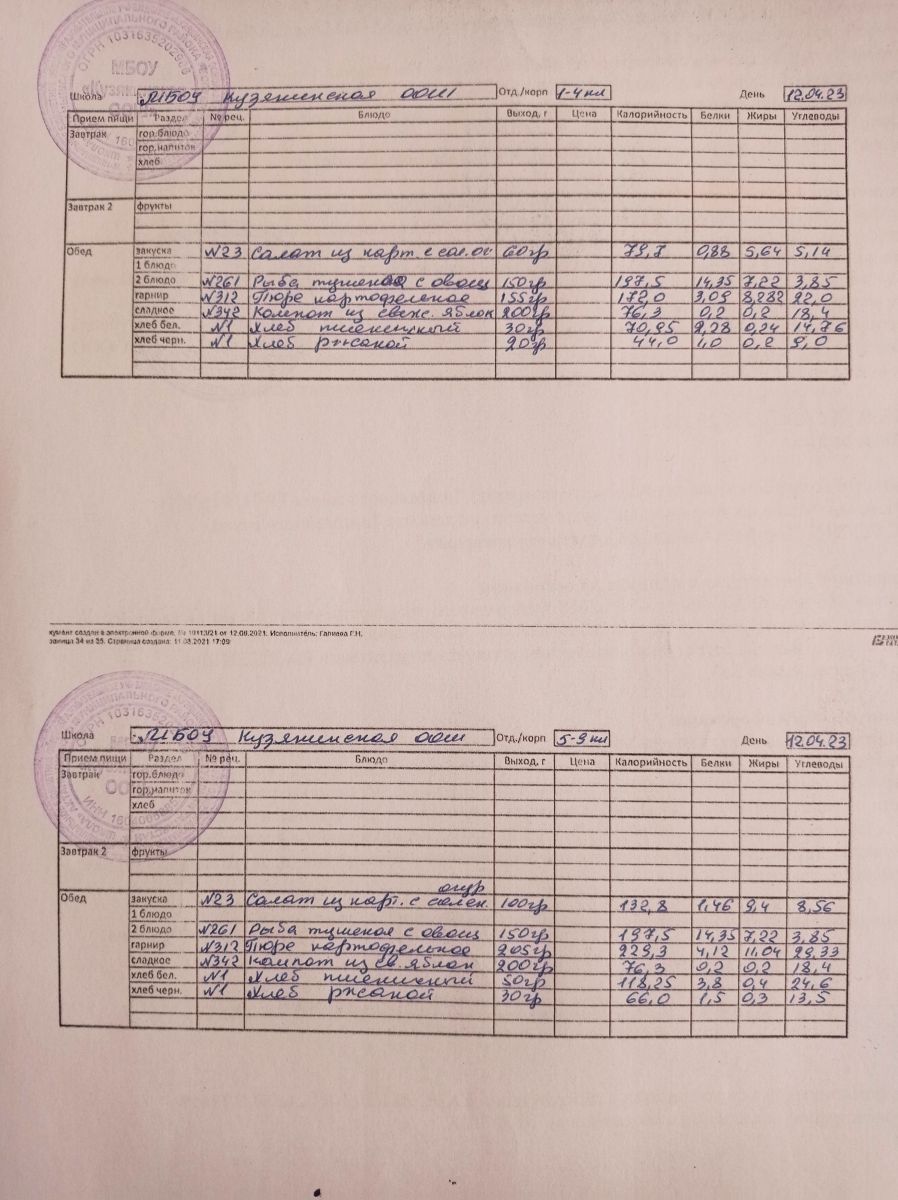 ОГРН 1031635202986
МБОУ
Школа МБОУ Кузякинская ООШ Отд./корп 1-4 кл День 12.04.23
Прием пищи Раздел № рец. Блюдо Выход, г Цена Калорийность Белки Жиры Углеводы
Завтрак гор.блюдо
гор.напиток
хлеб
Завтрак 2 фрукты
Обед закуска №23 Салат из карт. с сол. ог 60гр 79,7 0,88 5,64 5,14
1 блюдо
2 блюдо №261 Рыба тушеная с овощ 150гр 197,5 14,35 7,22 3,85
гарнир №312 Пюре картофельное 155гр 172,0 3,09 8,282 22,0
сладкое №342 Компот из свеж. яблок 200гр 76,3 0,2 0,2 18,4
хлеб бел. №1 Хлеб пшеничный 30гр 70,95 2,28 0,24 14,76
хлеб черн. №1 Хлеб ржаной 20гр 44,0 1,0 0,2 9,0
кумент создан в электронной форме. № 10113/21 от 12.08.2021. Исполнитель: Галиева Г.Н.
раница 34 из 35. Страница создана: 11.08.2021 17:09
Школа МБОУ Кузякинская ООШ Отд./корп 5-9 кл День 12.04.23
Прием пищи Раздел № рец. Блюдо Выход, г Цена Калорийность Белки Жиры Углеводы
Завтрак гор.блюдо
гор.напиток
хлеб
Завтрак 2 фрукты
огур
Обед закуска №23 Салат из карт. с солен. 100гр 132,8 1,46 9,4 8,56
1 блюдо
2 блюдо №261 Рыба тушеная с овощ 150гр 197,5 14,35 7,22 3,85
гарнир №312 Пюре картофельное 205гр 229,3 4,12 11,04 29,33
сладкое №342 Компот из св. яблок 200гр 76,3 0,2 0,2 18,4
хлеб бел. №1 Хлеб пшеничный 50гр 118,25 3,8 0,4 24,6
хлеб черн. №1 Хлеб ржаной 30гр 66,0 1,5 0,3 13,5